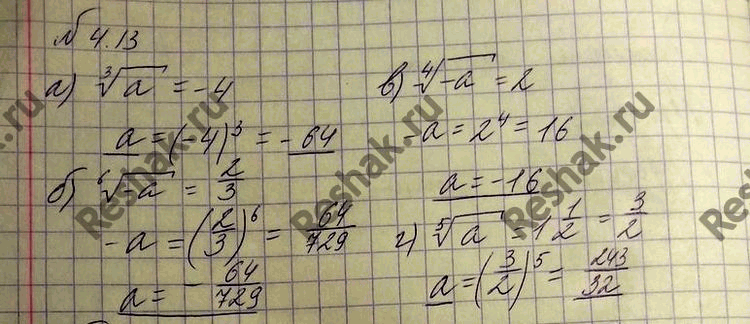 № 4.13
а) ∛a = -4
a = (-4)³ = -64
б) ⁶√-a = 2/3
-a = (2/3)⁶ = 64/729
a = - 64/729
в) ⁴√-a = 2
-a = 2⁴ = 16
a = -16
г) ⁵√a = 1 1/2 = 3/2
a = (3/2)⁵ = 243/32
Reshak.ru
Reshak.ru
Reshak.ru
Reshak.ru